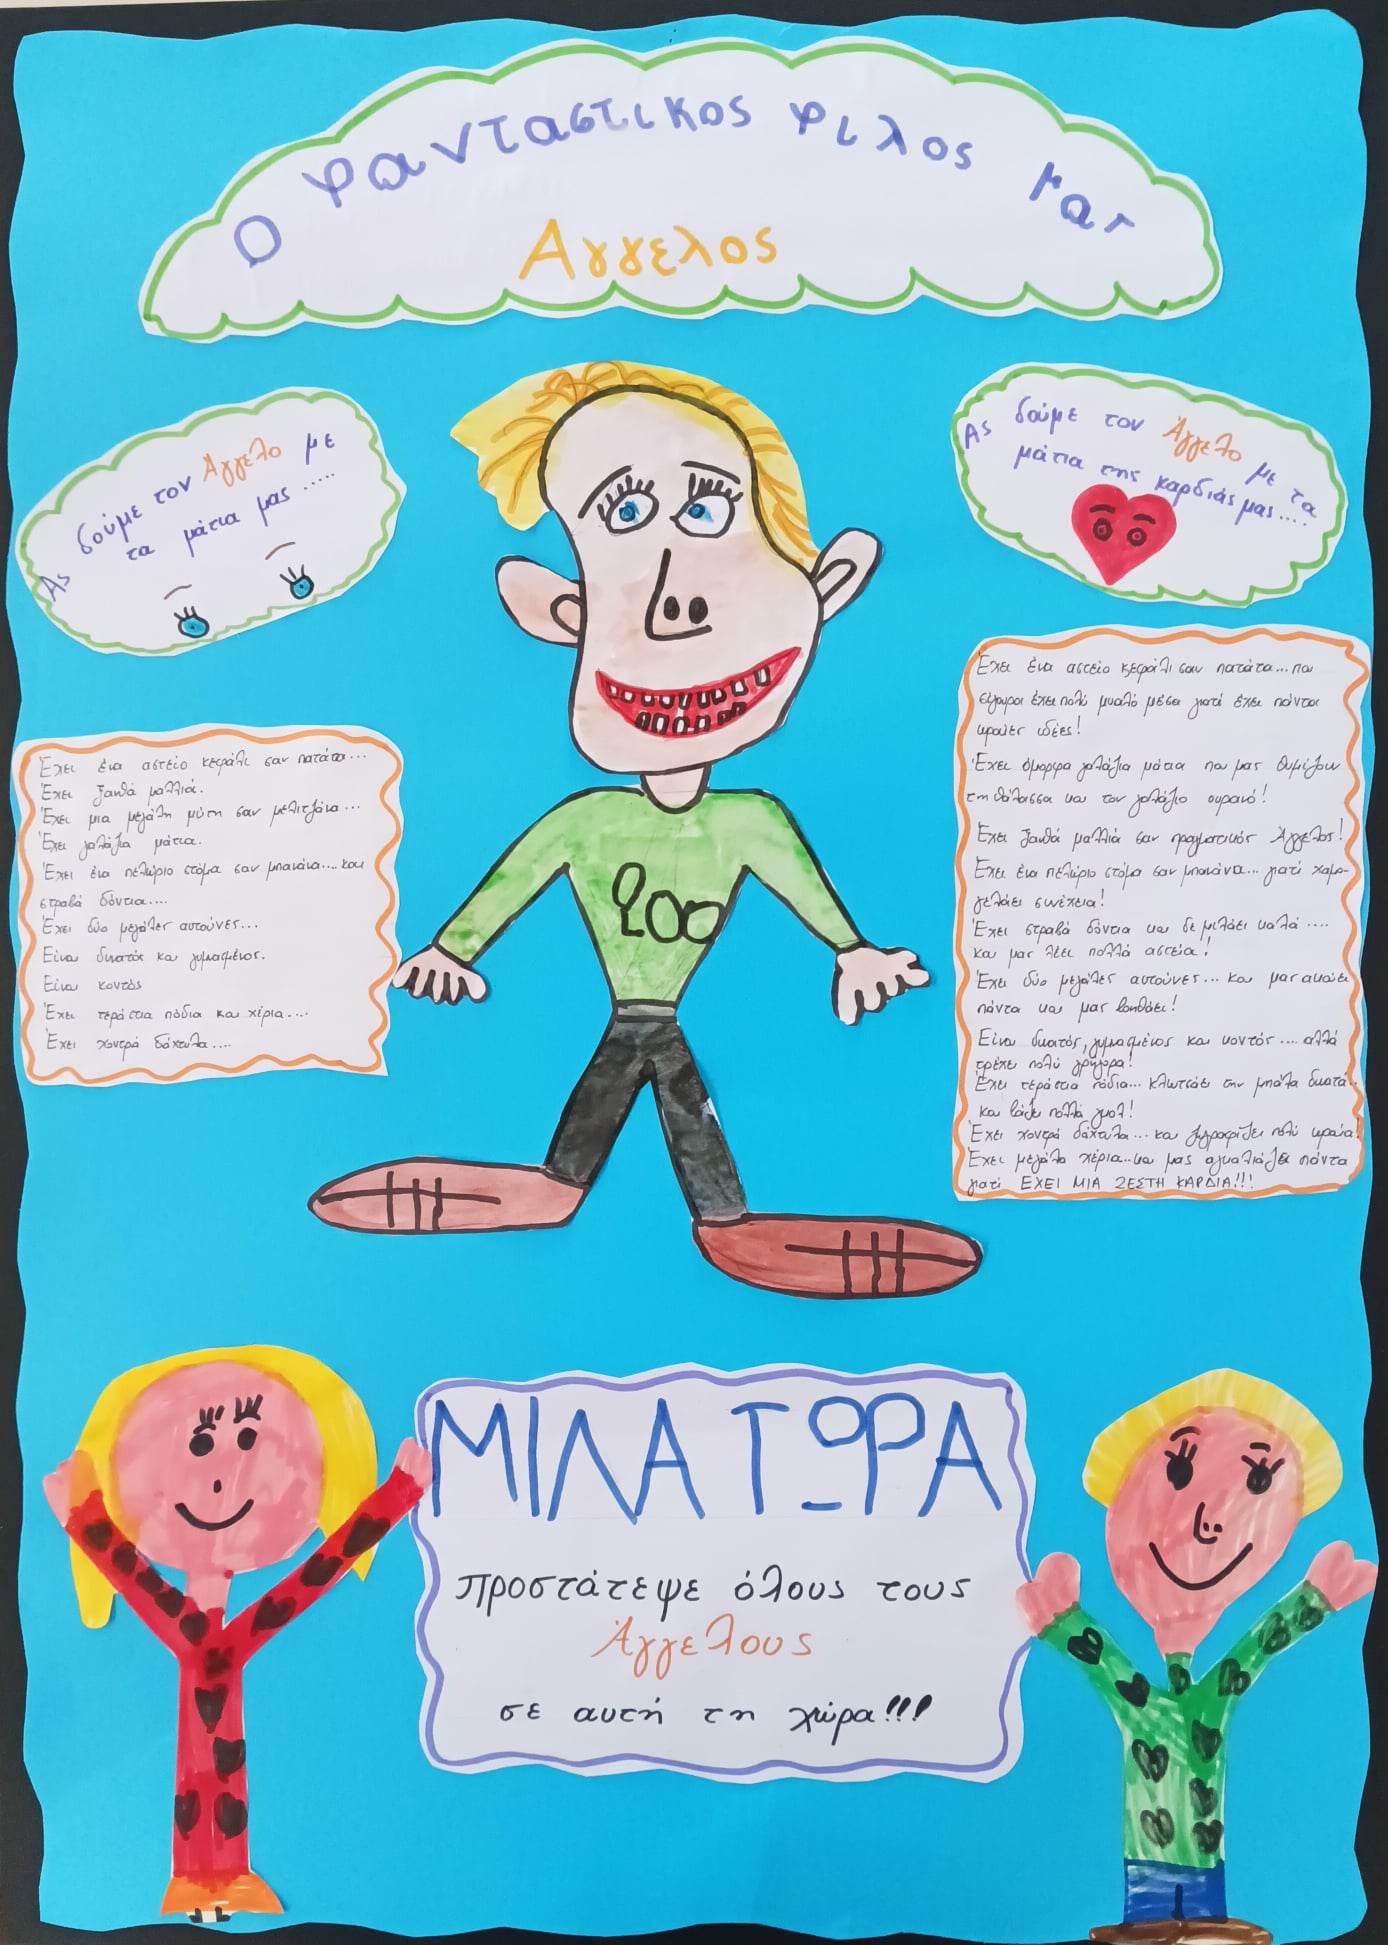 Ο φανταστικος φιλος μας
Αγγελος
Ας δούμε τον Άγγελο με
τα μάτια μας .....
Ας δούμε τον Άγγελο με τα
μάτια της καρδιάς μας....
Έχει ένα αστείο κεφάλι σαν πατάτα...
Έχει ξανθά μαλλιά.
Έχει μια μεγάλη μύτη σαν μελιτζάνα...
Έχει γαλάζια μάτια.
Έχει ένα πελώριο στόμα σαν μπανάνα.... και
στραβά δόντια....
Έχει δύο μεγάλες αυτούνες...
Είναι δυνατός και γυμνασμένος.
Είναι κοντός
Έχει τεράστια πόδια και χέρια....
Έχει χοντρά δάχτυλα....
200
Έχει ένα αστείο κεφάλι σαν πατάτα... που
σίγουρα έχει πολύ μυαλό μέσα γιατί έχει πάντα
ωραίες ιδέες!
Έχει όμορφα γαλάζια μάτια που μας θυμίζουν
τη θάλασσα και τον γαλάζιο ουρανό!
Έχει ξανθά μαλλιά σαν πραγματικός Άγγελος!
Έχει ένα πελώριο στόμα σαν μπανάνα... γιατί χαμο-
γελάει συνέχεια!
Έχει στραβά δόντια και δε μιλάει καλά ....
και μας λέει πολλά αστεία!
Έχει δύο μεγάλες αυτούνες... και μας ακούει
πάντα και μας βοηθάει!
Είναι δυνατός, γυμνασμένος και κοντός .... αλλά
τρέχει πολύ γρήγορα!
Έχει τεράστια πόδια... κλωτσάει την μπάλα δυνατά..
και βάζει πολλά γκολ!
Έχει χοντρά δάχτυλα... και ζωγραφίζει πολύ ωραία!
Έχει μεγάλα χέρια... και μας αγκαλιάζει πάντα
γιατί ΕΧΕΙ ΜΙΑ ΖΕΣΤΗ ΚΑΡΔΙΑ!!!
ΜΙΛΑ ΤΩΡΑ
προστάτεψε όλους τους
Άγγελους
σε αυτή τη χώρα!!!